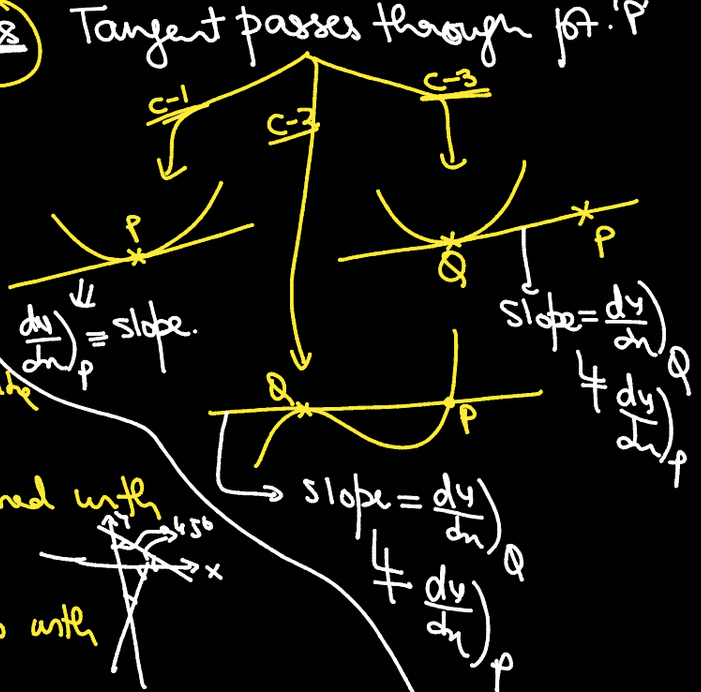 Tangent passes through pt. 'P'
C-1
C-2
C-3
P
Q
P
dy/dx)P ≡ slope.
slope = dy/dx)Q
≠ dy/dx)P
Q
P
slope = dy/dx)Q
≠ dy/dx)P
with
Y
45°
X
with